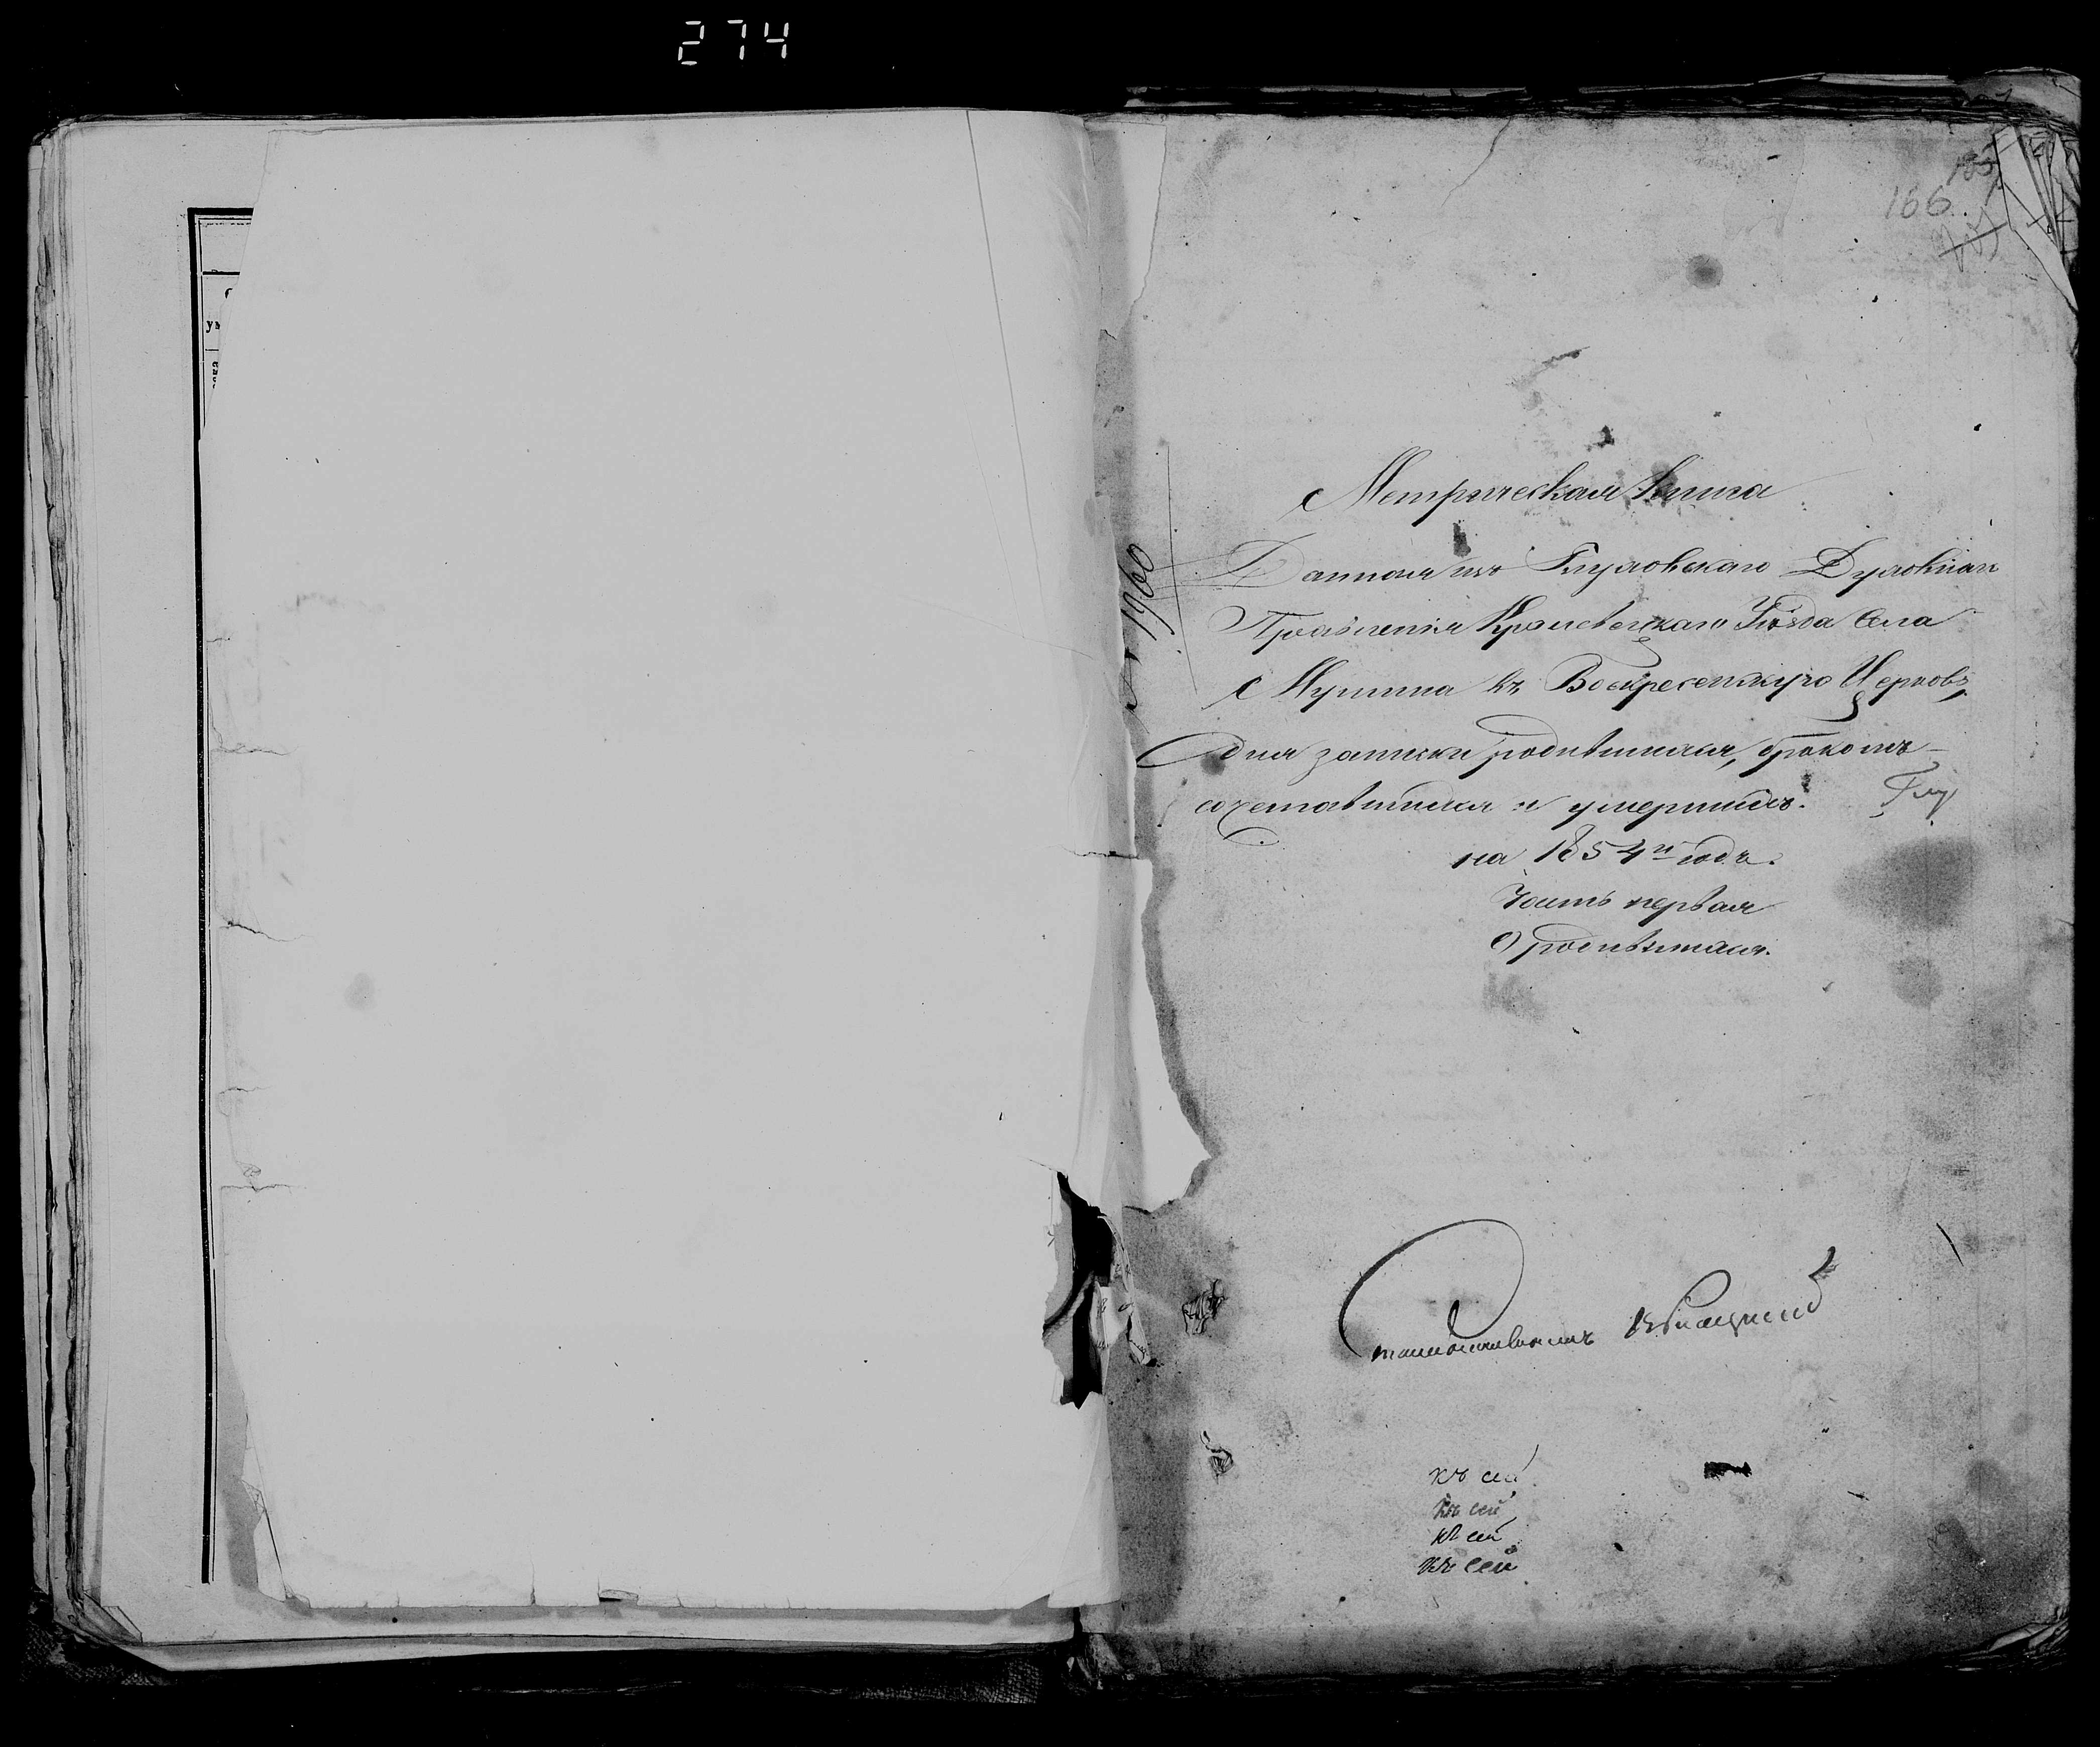 274
166
1960
Метрическая Книга
Данная изъ Глуховскаго Духовнаго
Правленія Кролевецкаго Уѣзда Села
Мутина въ Воскресенскую Церковь,
для записки родившихся, бракомъ
сочетавшихся и умершихъ.
Глу
на 1854й годъ.
Часть первая
О родившихся.
къ сей
къ сей
къ сей
къ сей